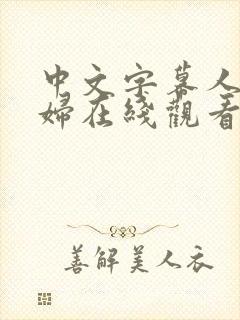 中文字幕人
婦在綫觀看
善解美人衣